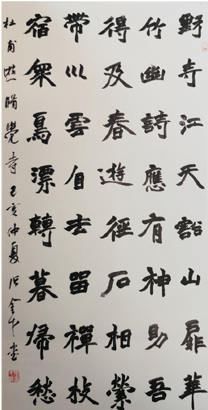 野寺江天豁山扉華
竹幽詩應有神助吾
得及春遊徑石相縈
帶川雲自去留禪枝
宿衆鳥漂轉暮歸愁
杜甫遊脩覺寺己亥仲夏